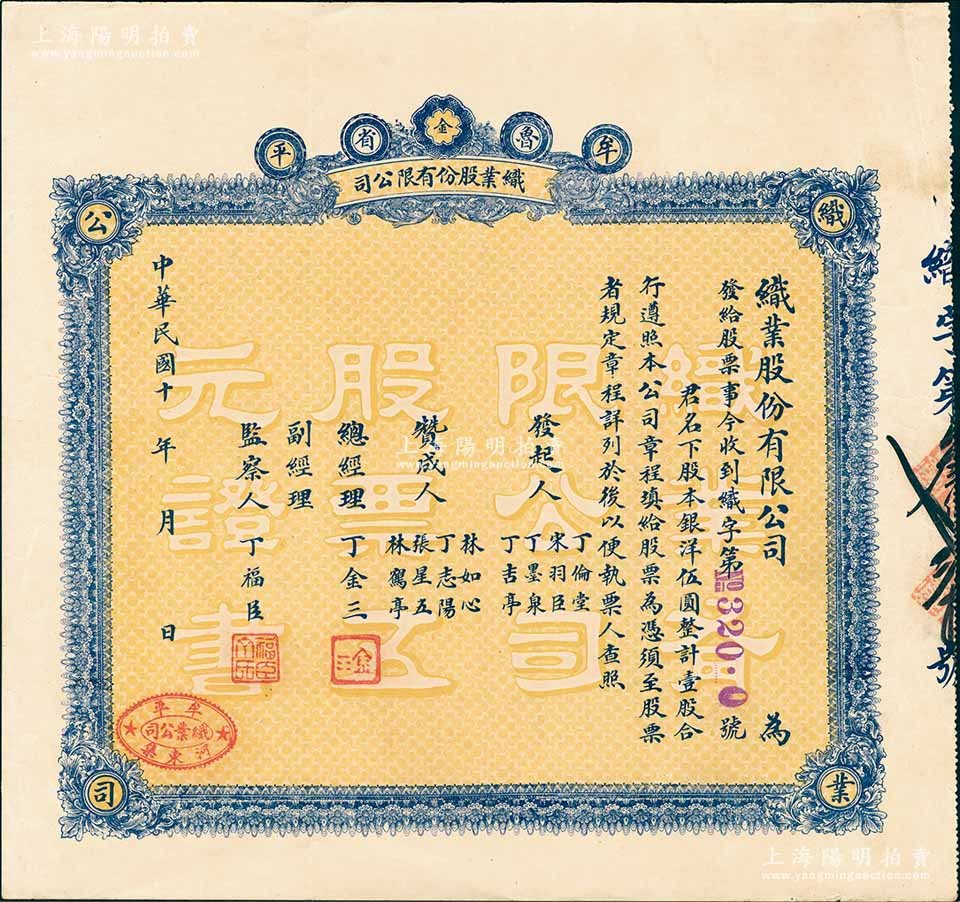 上海陽明拍賣
www.yangmingauction.com
牟魯金省平
織業股份有限公司
織
業
公
司
織業股份有限公司 為
發給股票事今收到織字第 No 320.0 號
君名下股本銀洋伍圓整計壹股合
行遵照本公司章程填給股票為憑須至股票
者規定章程詳列於後以便執票人查照
發起人
丁倫堂
宋羽臣
丁墨泉
丁吉亭
贊成人
林如心
丁志陽
張星五
林鶴亭
總經理 丁金三
金三
副經理
監察人 丁福臣
中華民國十 年 月 日
織業
股份有
限公司
股票五
元證書
牟平
織業公司
河東桑
織字第
號
上海陽明拍賣
www.yangmingauction.com
上海陽明拍賣
www.yangmingauction.com